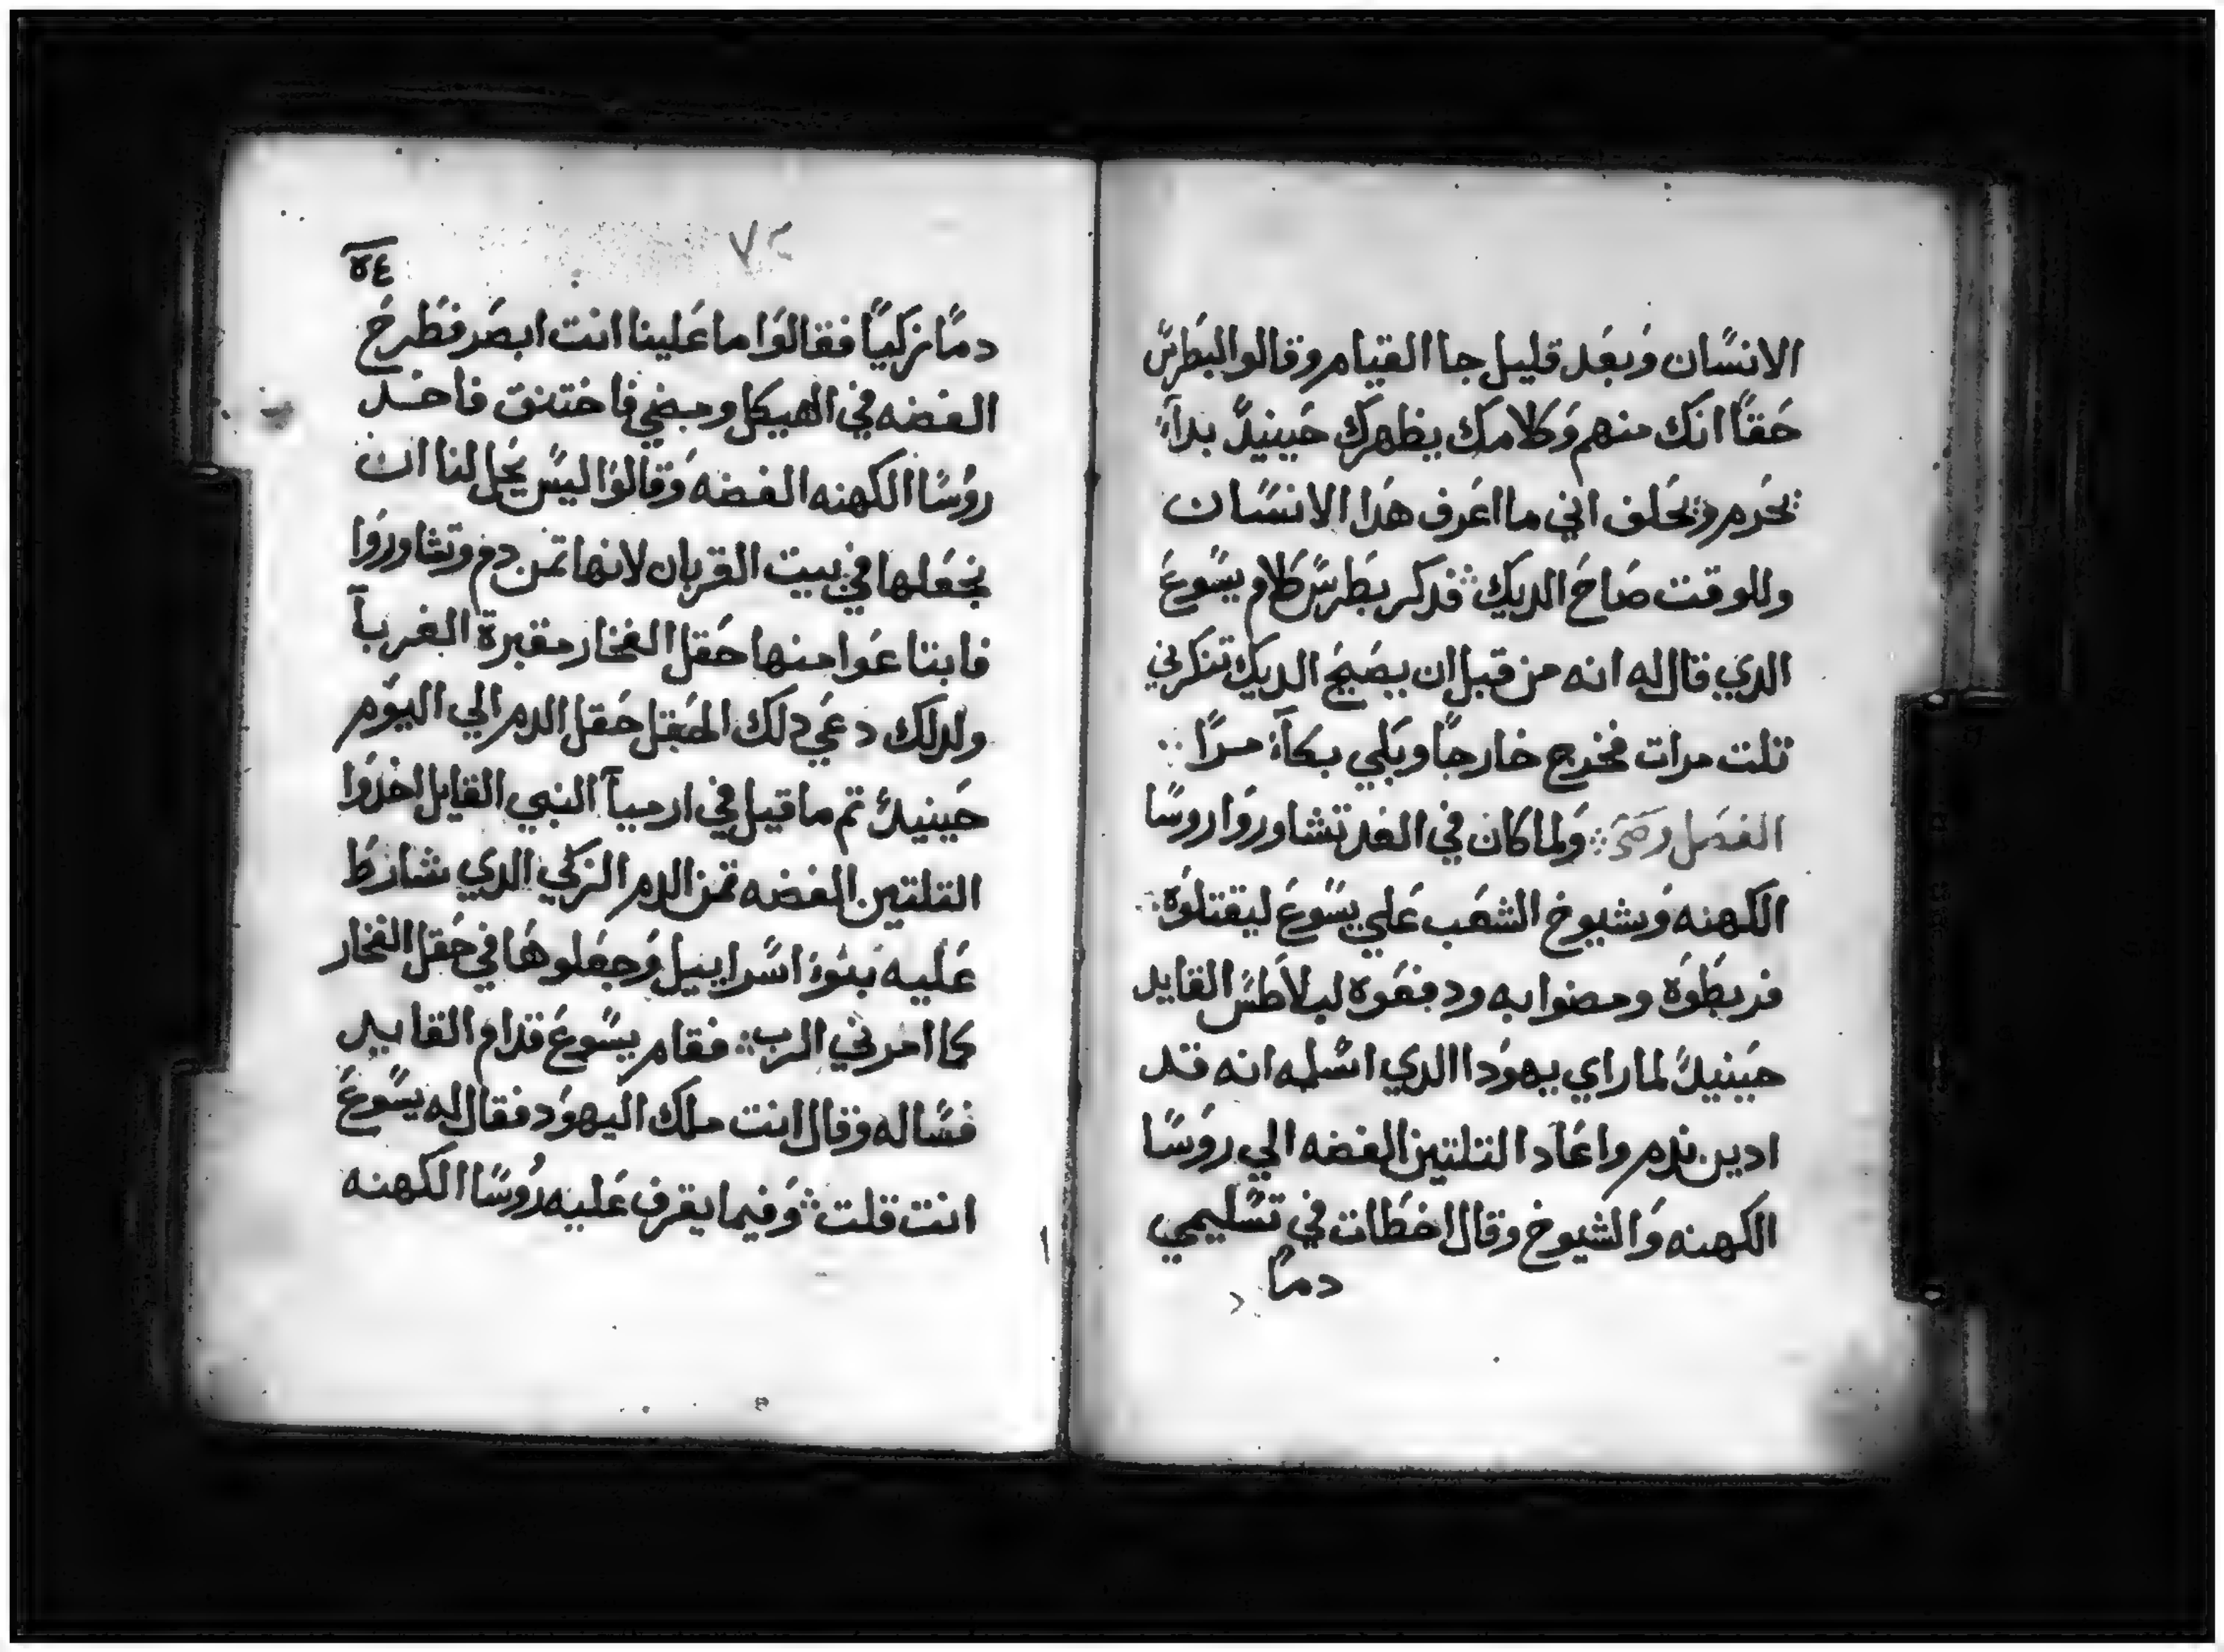 الانسان وبعد قليل جا القيام وقالوا لبطرس
حقاً انك منهم وكلامك يظهرك حينيدً بداَ
يحرم ويحلف اني ما اعرف هدا الانسان
وللوقت صاح الديك فدكر بطرس كلام يسوع
الدي قال له انه من قبل ان يصيح الديك تنكرني
تلت مرات فخرج خارجاً وبكي بكاَ مراً
الفصل ولما كان في الغد تشاوروا روسا
الكهنه وشيوخ الشعب علي يسوع ليقتلوه
فربطوه ومضوا به ودفعوه لبلاطس القايد
حينيدً لما راي يهودا الدي اسلمه انه قد
ادين ندم واعاد التلتين الفضه الي روسا
الكهنه والشيوخ وقال اخطات في تسليمي
دماً
٧٢
٥٤
دماً زكياً فقالوا ما علينا انت ابصر فطرح
الفضه في الهيكل ومضي فاختنق فاخد
روسا الكهنه الفضه وقالوا ليس يحل لنا ان
نجعلها في بيت القربان لانها تمن دم وتشاوروا
فابتاعوا منها حقل الفخار مقبرة الغرباَ
ولدلك دعي دلك الحقل حقل الدم الي اليوم
حينيدً تم ما قيل في ارمياَ النبي القايل اخدوا
التلتين الفضه تمن الدم الزكي الدي شارط
عليه بنوا اسراييل وجعلوها في حقل الفخار
كما امرني الرب فقام يسوع قدام القايد
فساله وقال انت ملك اليهود فقال له يسوع
انت قلت وفيما يقرف عليه روسا الكهنه